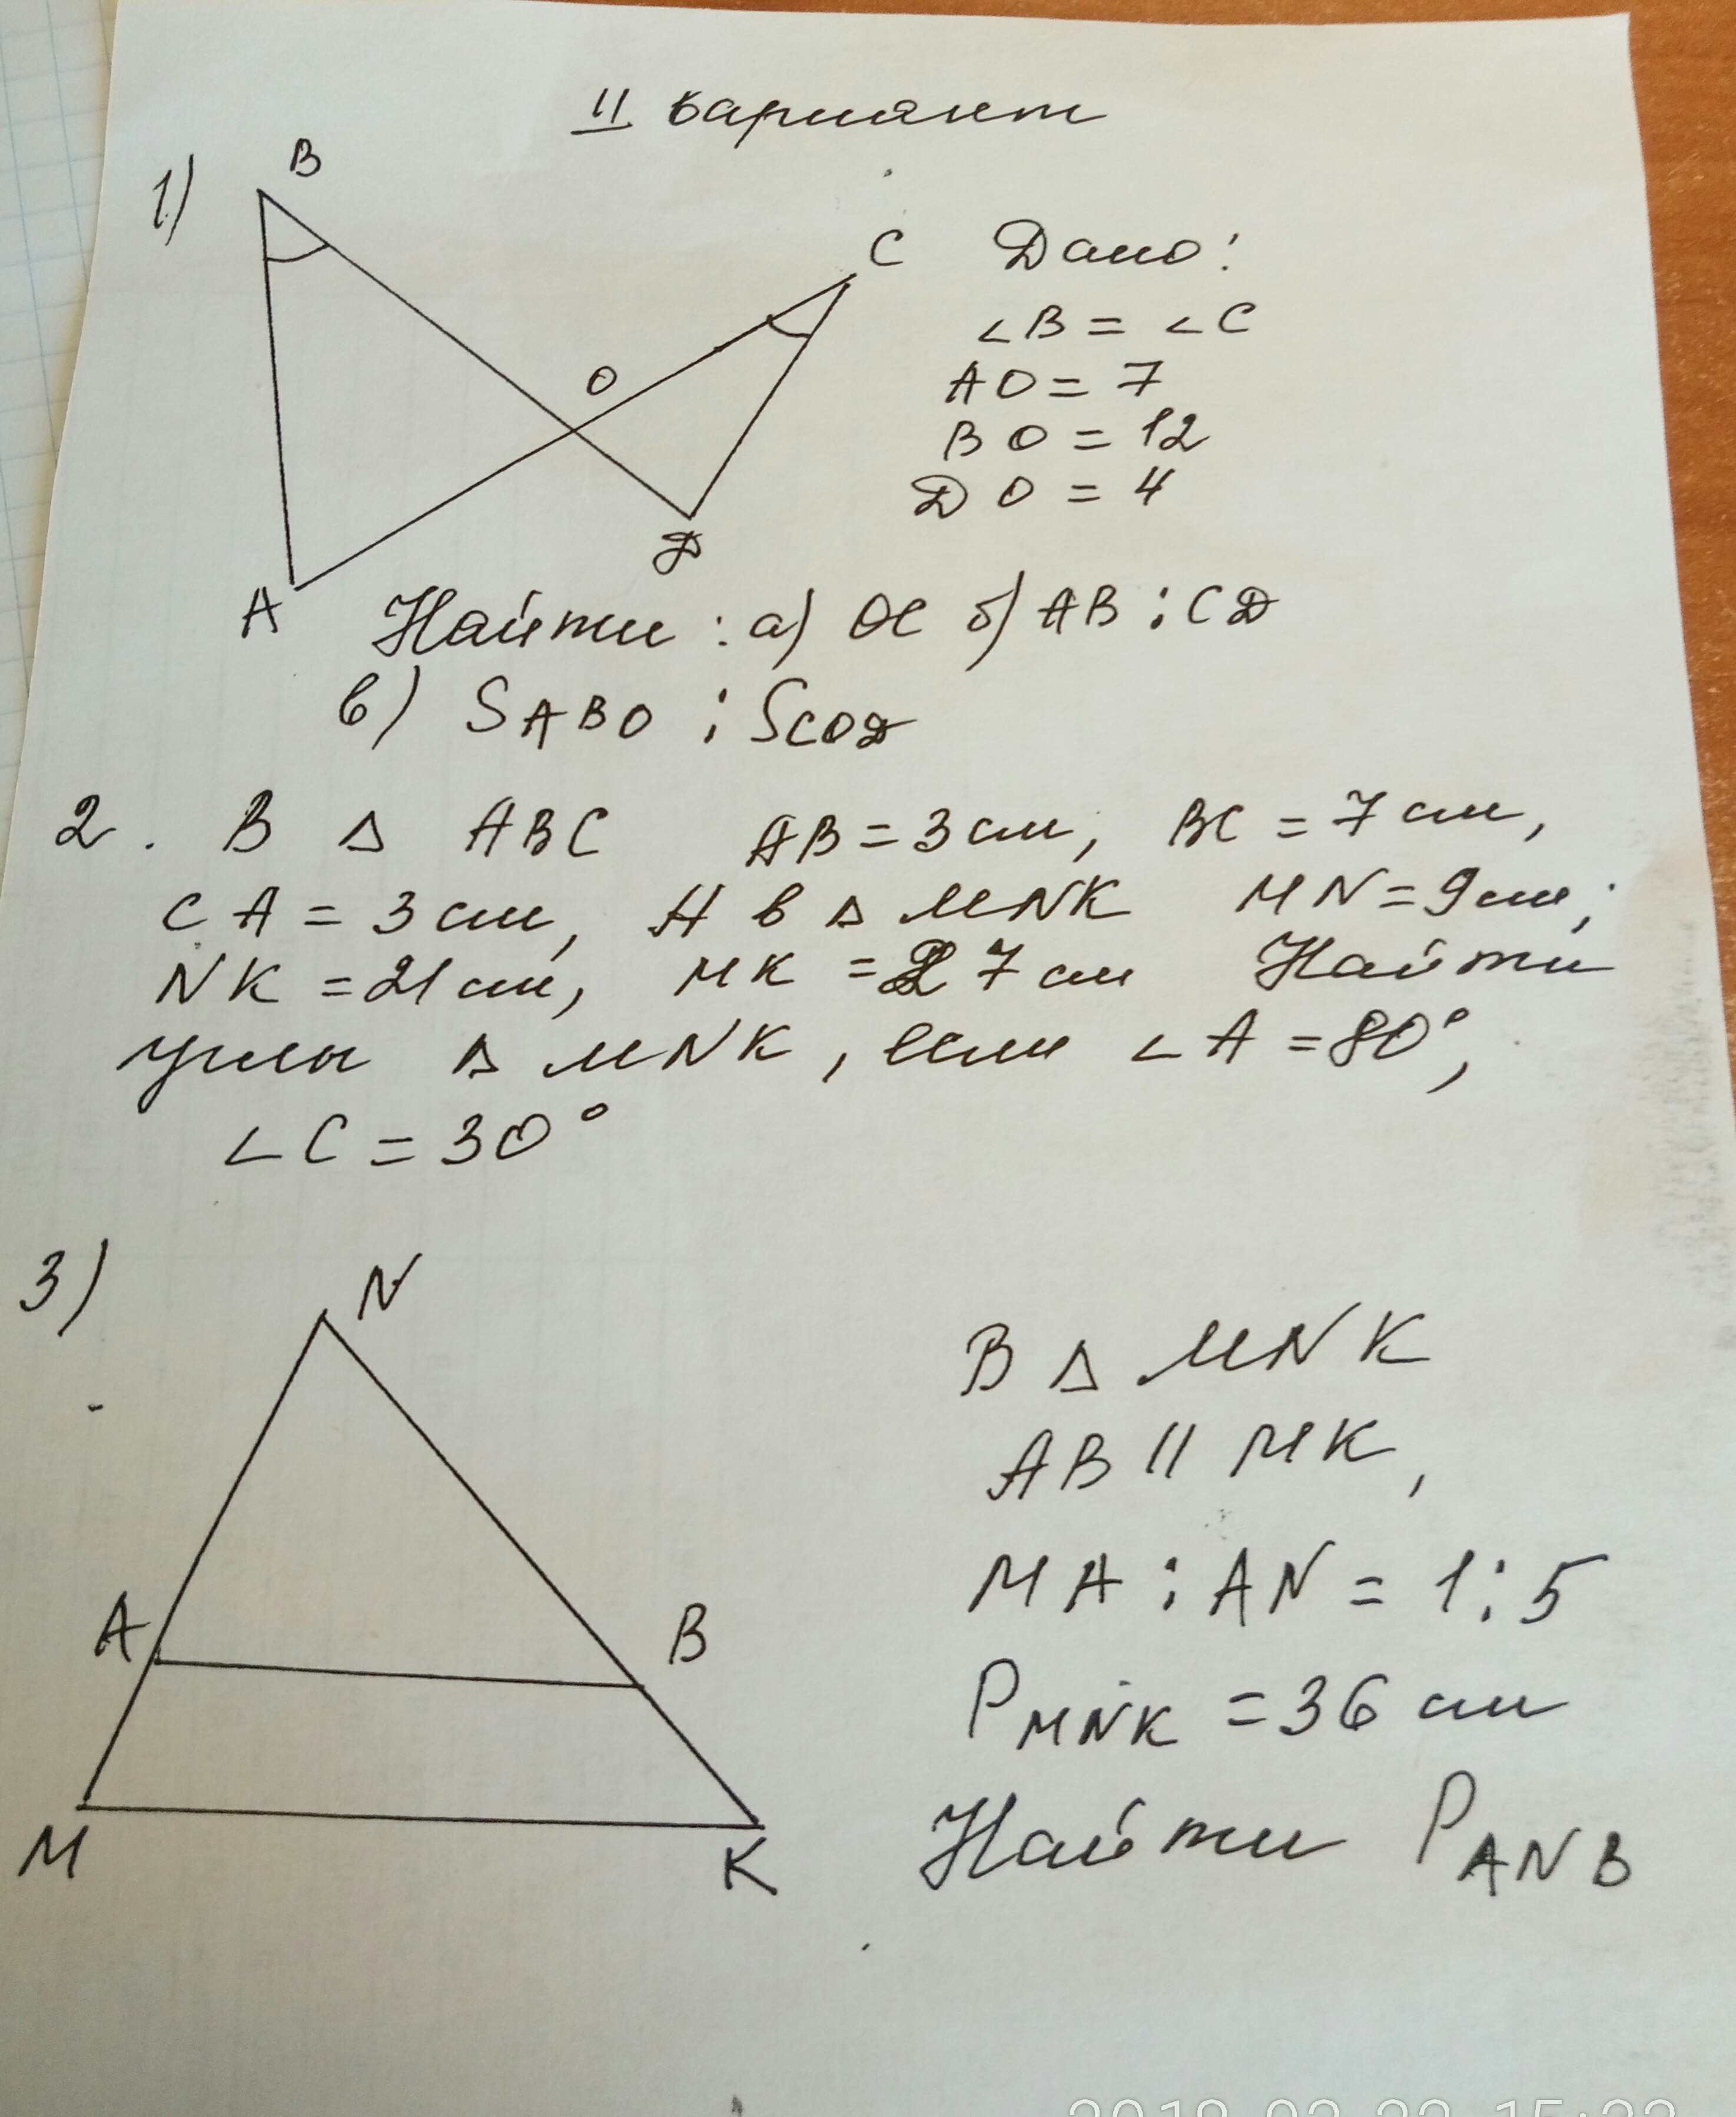 II вариант
1)
B
C
O
A
D
Дано:
∠B = ∠C
AO = 7
BO = 12
DO = 4
Найти : а) OC б) AB : CD
в) SABO : SCOD
2. В Δ ABC AB = 3 см, BC = 7 см,
CA = 3 см, А в Δ MNK MN = 9 см;
NK = 21 см, MK = 27 см Найти
углы Δ MNK, если ∠A = 80°,
∠C = 30°
3)
N
A
B
M
K
В Δ MNK
AB || MK,
MA : AN = 1 : 5
PMNK = 36 см
Найти PANB